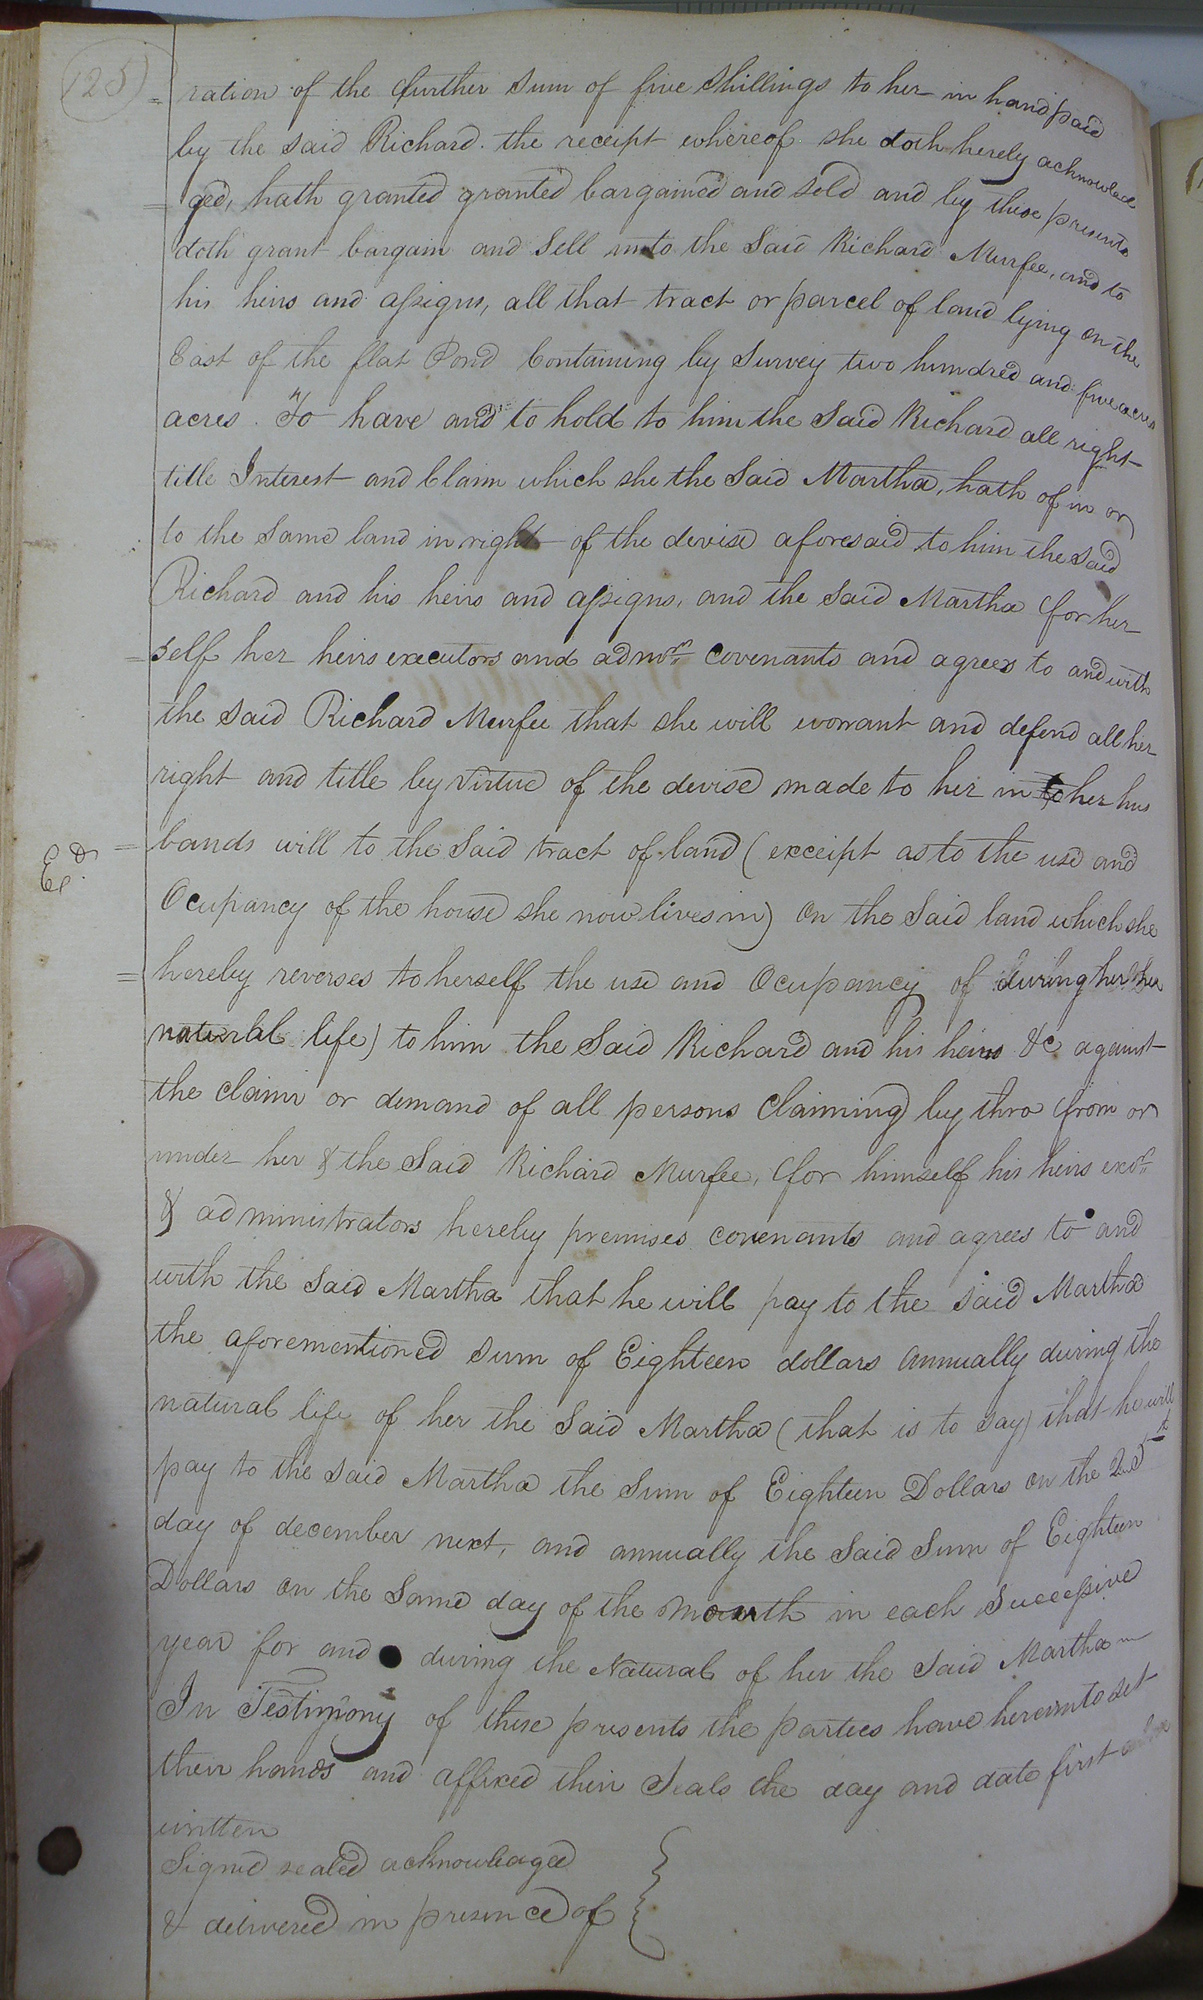 125
= ration of the further Sum of five Shillings to her in hand paid
by the said Richard. the receipt whereof she doth hereby acknowled
= ged, hath granted granted bargained and sold and by these presents
doth grant bargain and Sell unto the Said Richard Murfee, and to
his heirs and assigns, all that tract or parcel of land lying on the
East of the flat Pond Containing by Survey two hundred and five acres
acres. To have and to hold to him the Said Richard all right
title Interest and Claim which she the Said Martha, hath of in or
to the Same land in right of the devise aforesaid to him the said
Richard and his heirs and assigns, and the Said Martha for her
= self her heirs executors and admors covenants and agrees to and with
the Said Richard Murfee that she will warrant and defend all her
right and title by Virtue of the devise made to her in to her hus
= bands will to the Said tract of land (exceipt as to the use and
Ed.
Ocupancy of the house she now lives in) on the Said land which she
= hereby reverses to herself the use and Ocupancy of during her her
natural life) to him the Said Richard and his heirs &c against
the claim or demand of all persons Claiming by thro from or
under her & the Said Richard Murfee, for himself his heirs exors
& administrators hereby premises covenants and agrees to and
with the Said Martha that he will pay to the said Martha
the aforementioned Sum of Eighteen dollars annually during the
natural life of her the Said Martha (that is to say) that he will
pay to the said Martha the Sum of Eighteen Dollars on the 25th
day of december next, and annually the Said Sum of Eighteen
Dollars on the Same day of the Month in each Successive
year for and during the Natural of her the Said Martha
In Testimony of these presents the parties have hereunto set
their hands and affixed their Seals the day and date first
written
Signed sealed acknowledged
& delivered in presence of